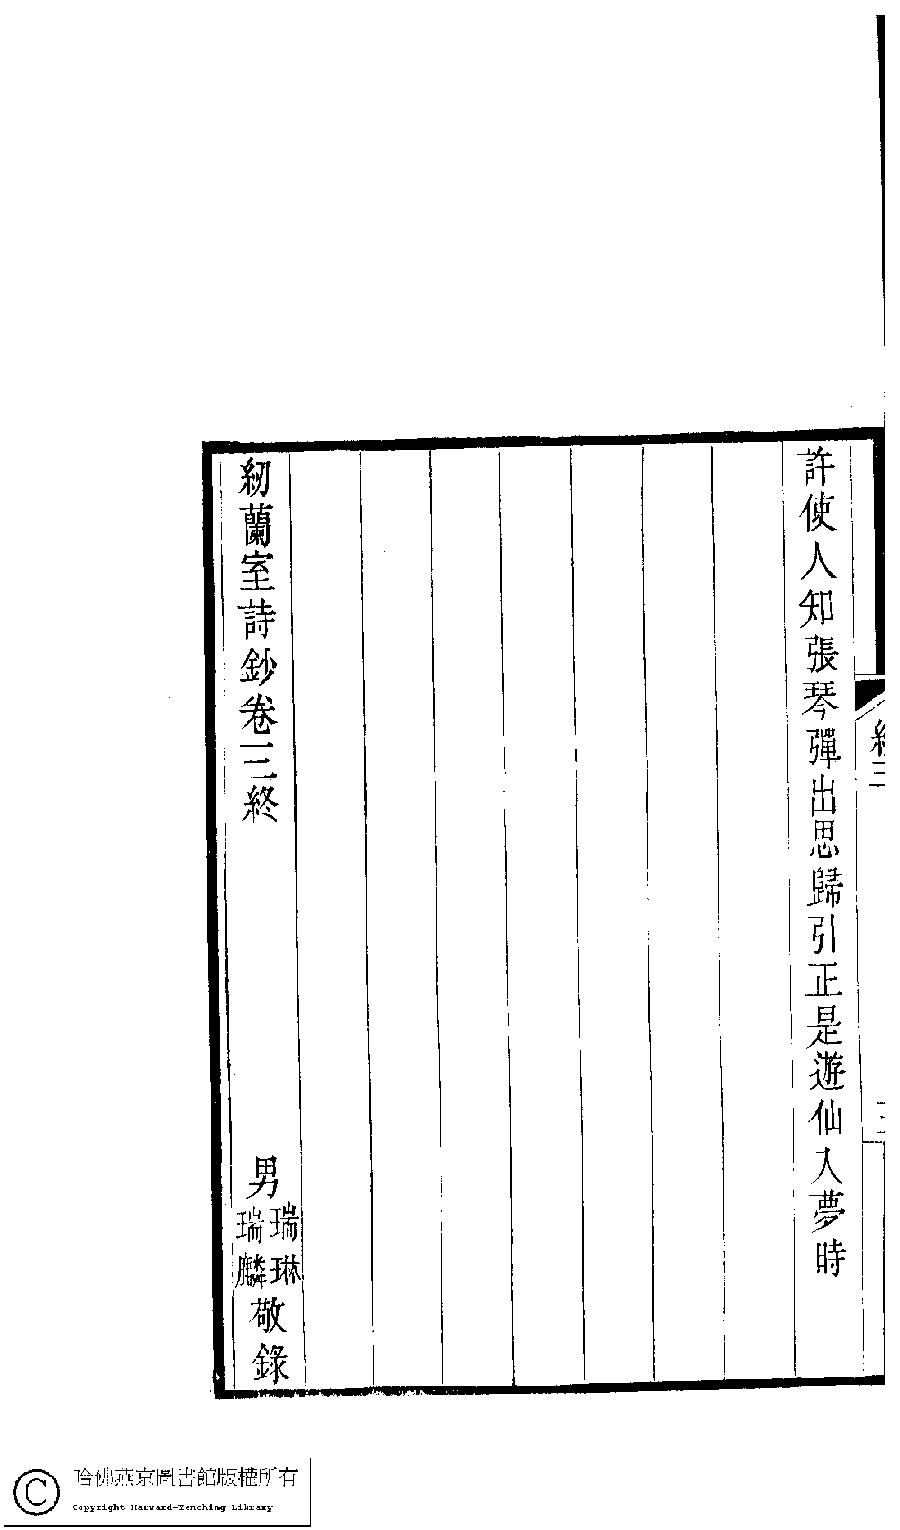 許使人知張琴彈出思歸引正是遊仙入夢時
紉蘭室詩鈔卷三終
男
瑞琳
瑞麟
敬錄
三
哈佛燕京圖書館版權所有
Copyright Harvard-Yenching Library